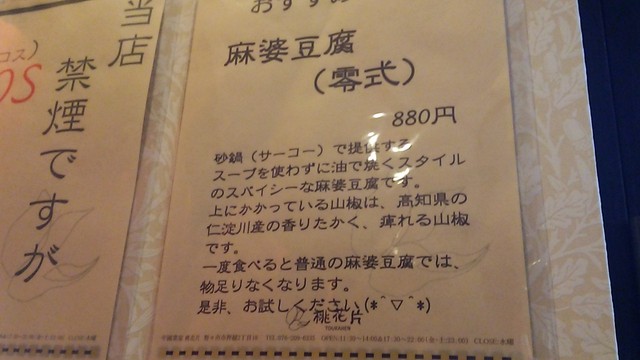 当店
コス)
OS
禁煙ですが
おすすめ
麻婆豆腐
(零式)
880円
砂鍋(サーコー)で提供する
スープを使わずに油で焼くスタイル
のスパイシーな麻婆豆腐です。
上にかかっている山椒は、高知県の
仁淀川産の香りたかく、痺れる山椒
です。
一度食べると普通の麻婆豆腐では、
物足りなくなります。
是非、お試しください(*^▽^*)
桃花片